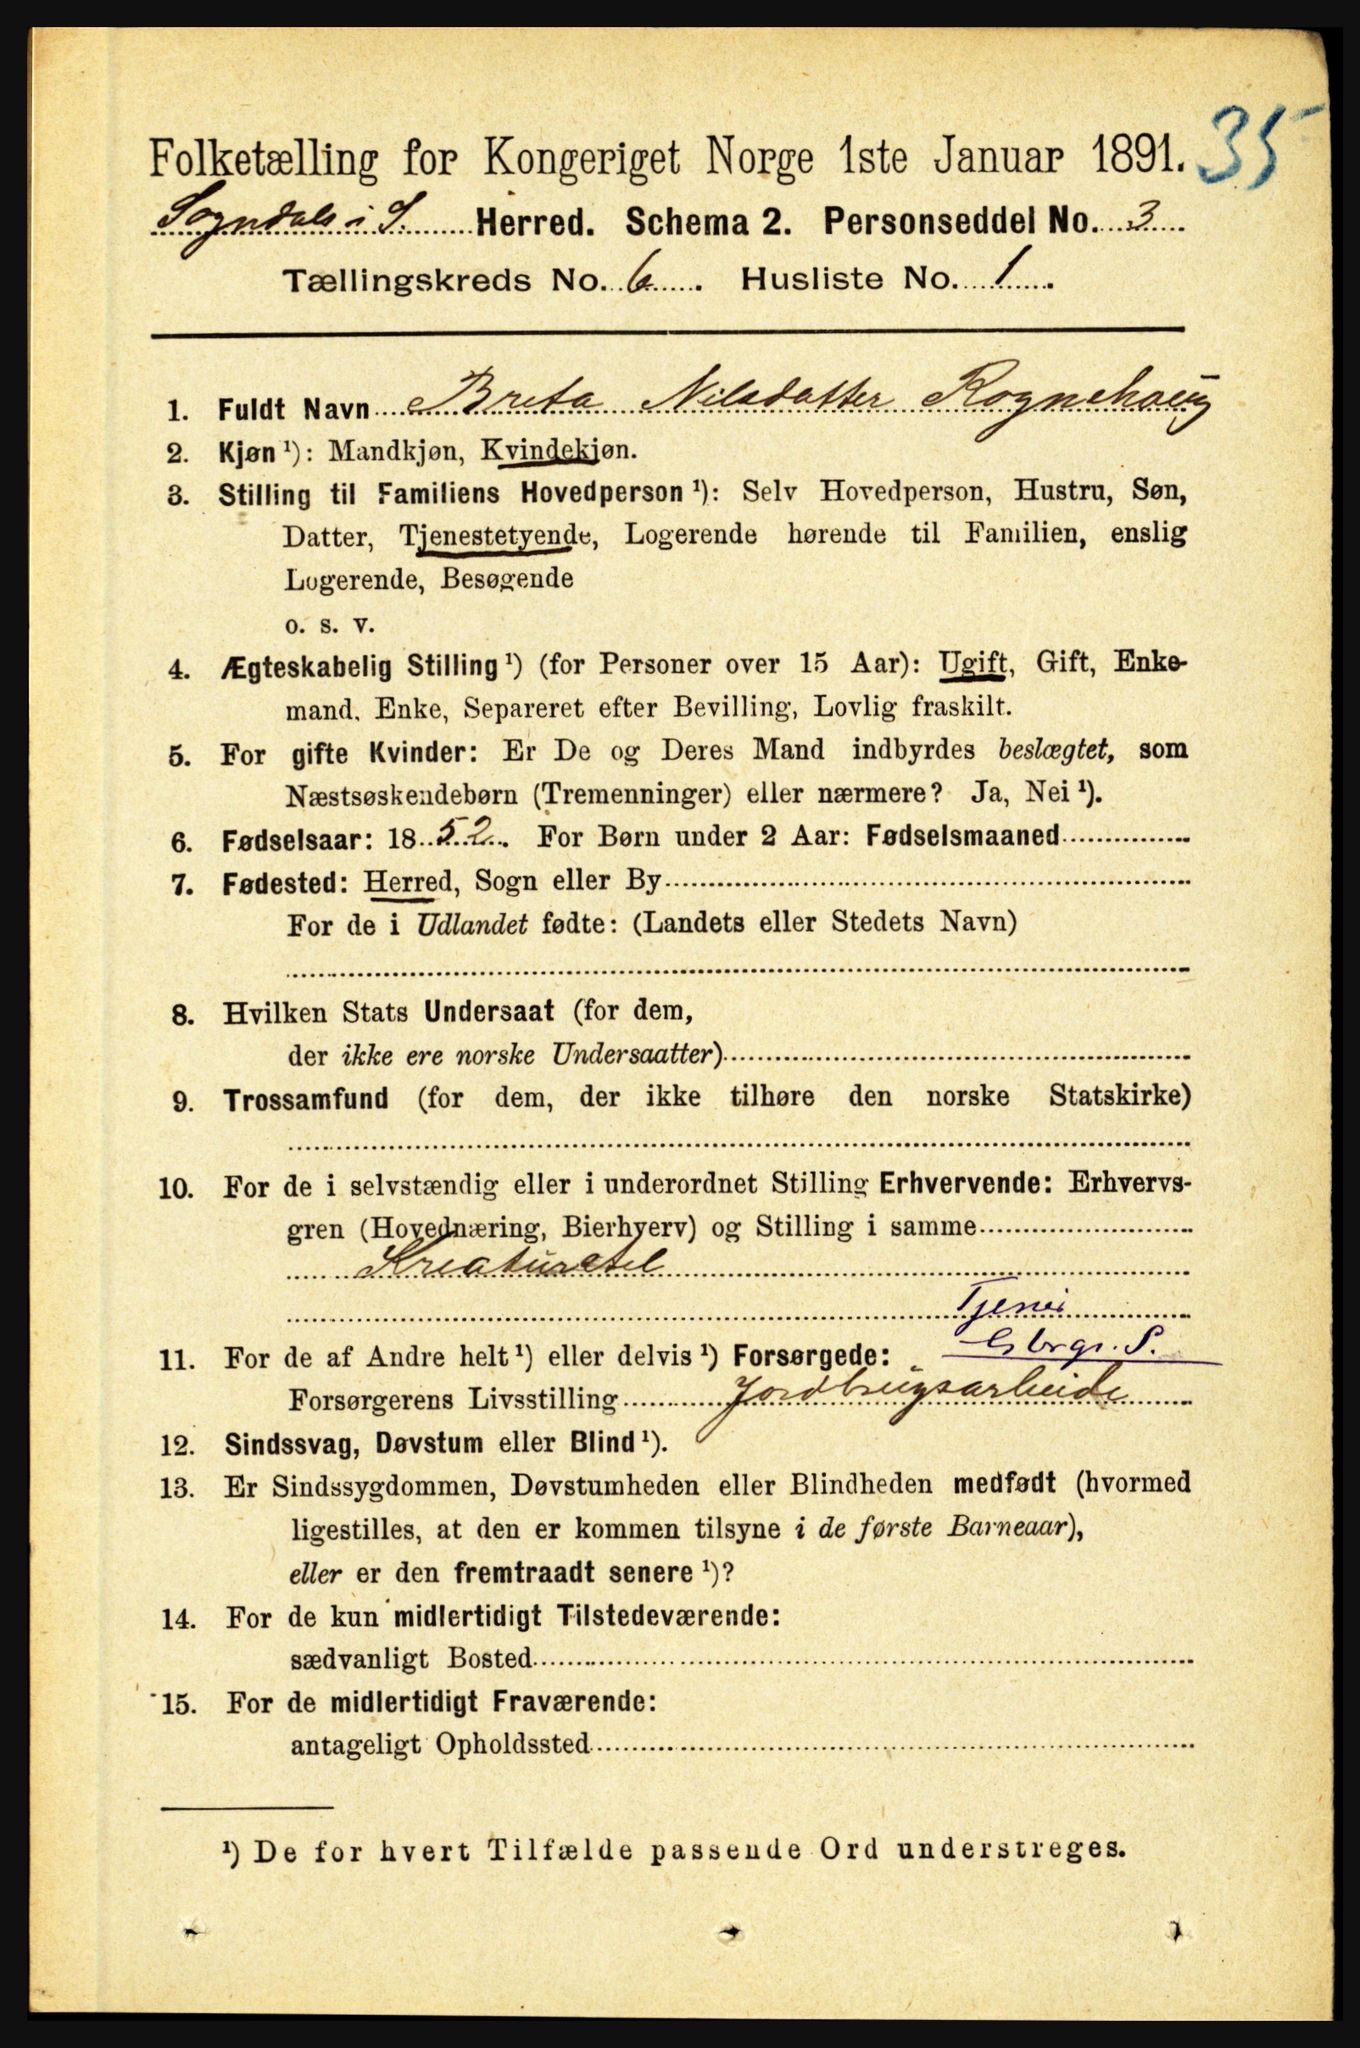 35
Folketælling for Kongeriget Norge 1ste Januar 1891.
Sogndals i S. Herred. Schema 2. Personseddel No. 3
Tællingskreds No. 6. Husliste No. 1.
1. Fuldt Navn Brita Nilsdatter Rognehaug
2. Kjøn ¹): Mandkjøn, Kvindekjøn.
3. Stilling til Familiens Hovedperson ¹): Selv Hovedperson, Hustru, Søn,
Datter, Tjenestetyende, Logerende hørende til Familien, enslig
Logerende, Besøgende
o. s. v.
4. Ægteskabelig Stilling ¹) (for Personer over 15 Aar): Ugift, Gift, Enke-
mand, Enke, Separeret efter Bevilling, Lovlig fraskilt.
5. For gifte Kvinder: Er De og Deres Mand indbyrdes beslægtet, som
Næstsøskendebørn (Tremenninger) eller nærmere? Ja, Nei ¹).
6. Fødselsaar: 1852. For Børn under 2 Aar: Fødselsmaaned
7. Fødested: Herred, Sogn eller By
For de i Udlandet fødte: (Landets eller Stedets Navn)
8. Hvilken Stats Undersaat (for dem,
der ikke ere norske Undersaatter)
9. Trossamfund (for dem, der ikke tilhøre den norske Statskirke)
10. For de i selvstændig eller i underordnet Stilling Erhvervende: Erhvervs-
gren (Hovednæring, Bierhverv) og Stilling i samme
Kreaturstel
Tjener
Gbrgr. S.
11. For de af Andre helt ¹) eller delvis ¹) Forsørgede:
Forsørgerens Livsstilling Jordbrugsarbeide
12. Sindssvag, Døvstum eller Blind ¹).
13. Er Sindssygdommen, Døvstumheden eller Blindheden medfødt (hvormed
ligestilles, at den er kommen tilsyne i de første Barneaar),
eller er den fremtraadt senere ¹)?
14. For de kun midlertidigt Tilstedeværende:
sædvanligt Bosted
15. For de midlertidigt Fraværende:
antageligt Opholdssted
¹) De for hvert Tilfælde passende Ord understreges.